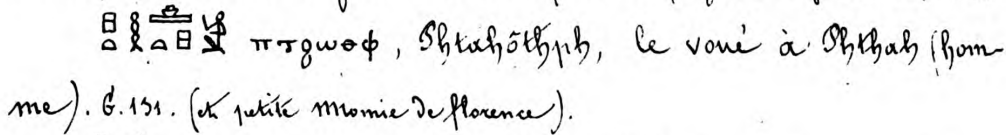 𓊪𓏏𓎛𓊵𓏏𓊪𓀀 πτϩωθφ, Phtahôthph, le voué à Phthah (hom-
me). G. 131. (et petite Momie de florence).